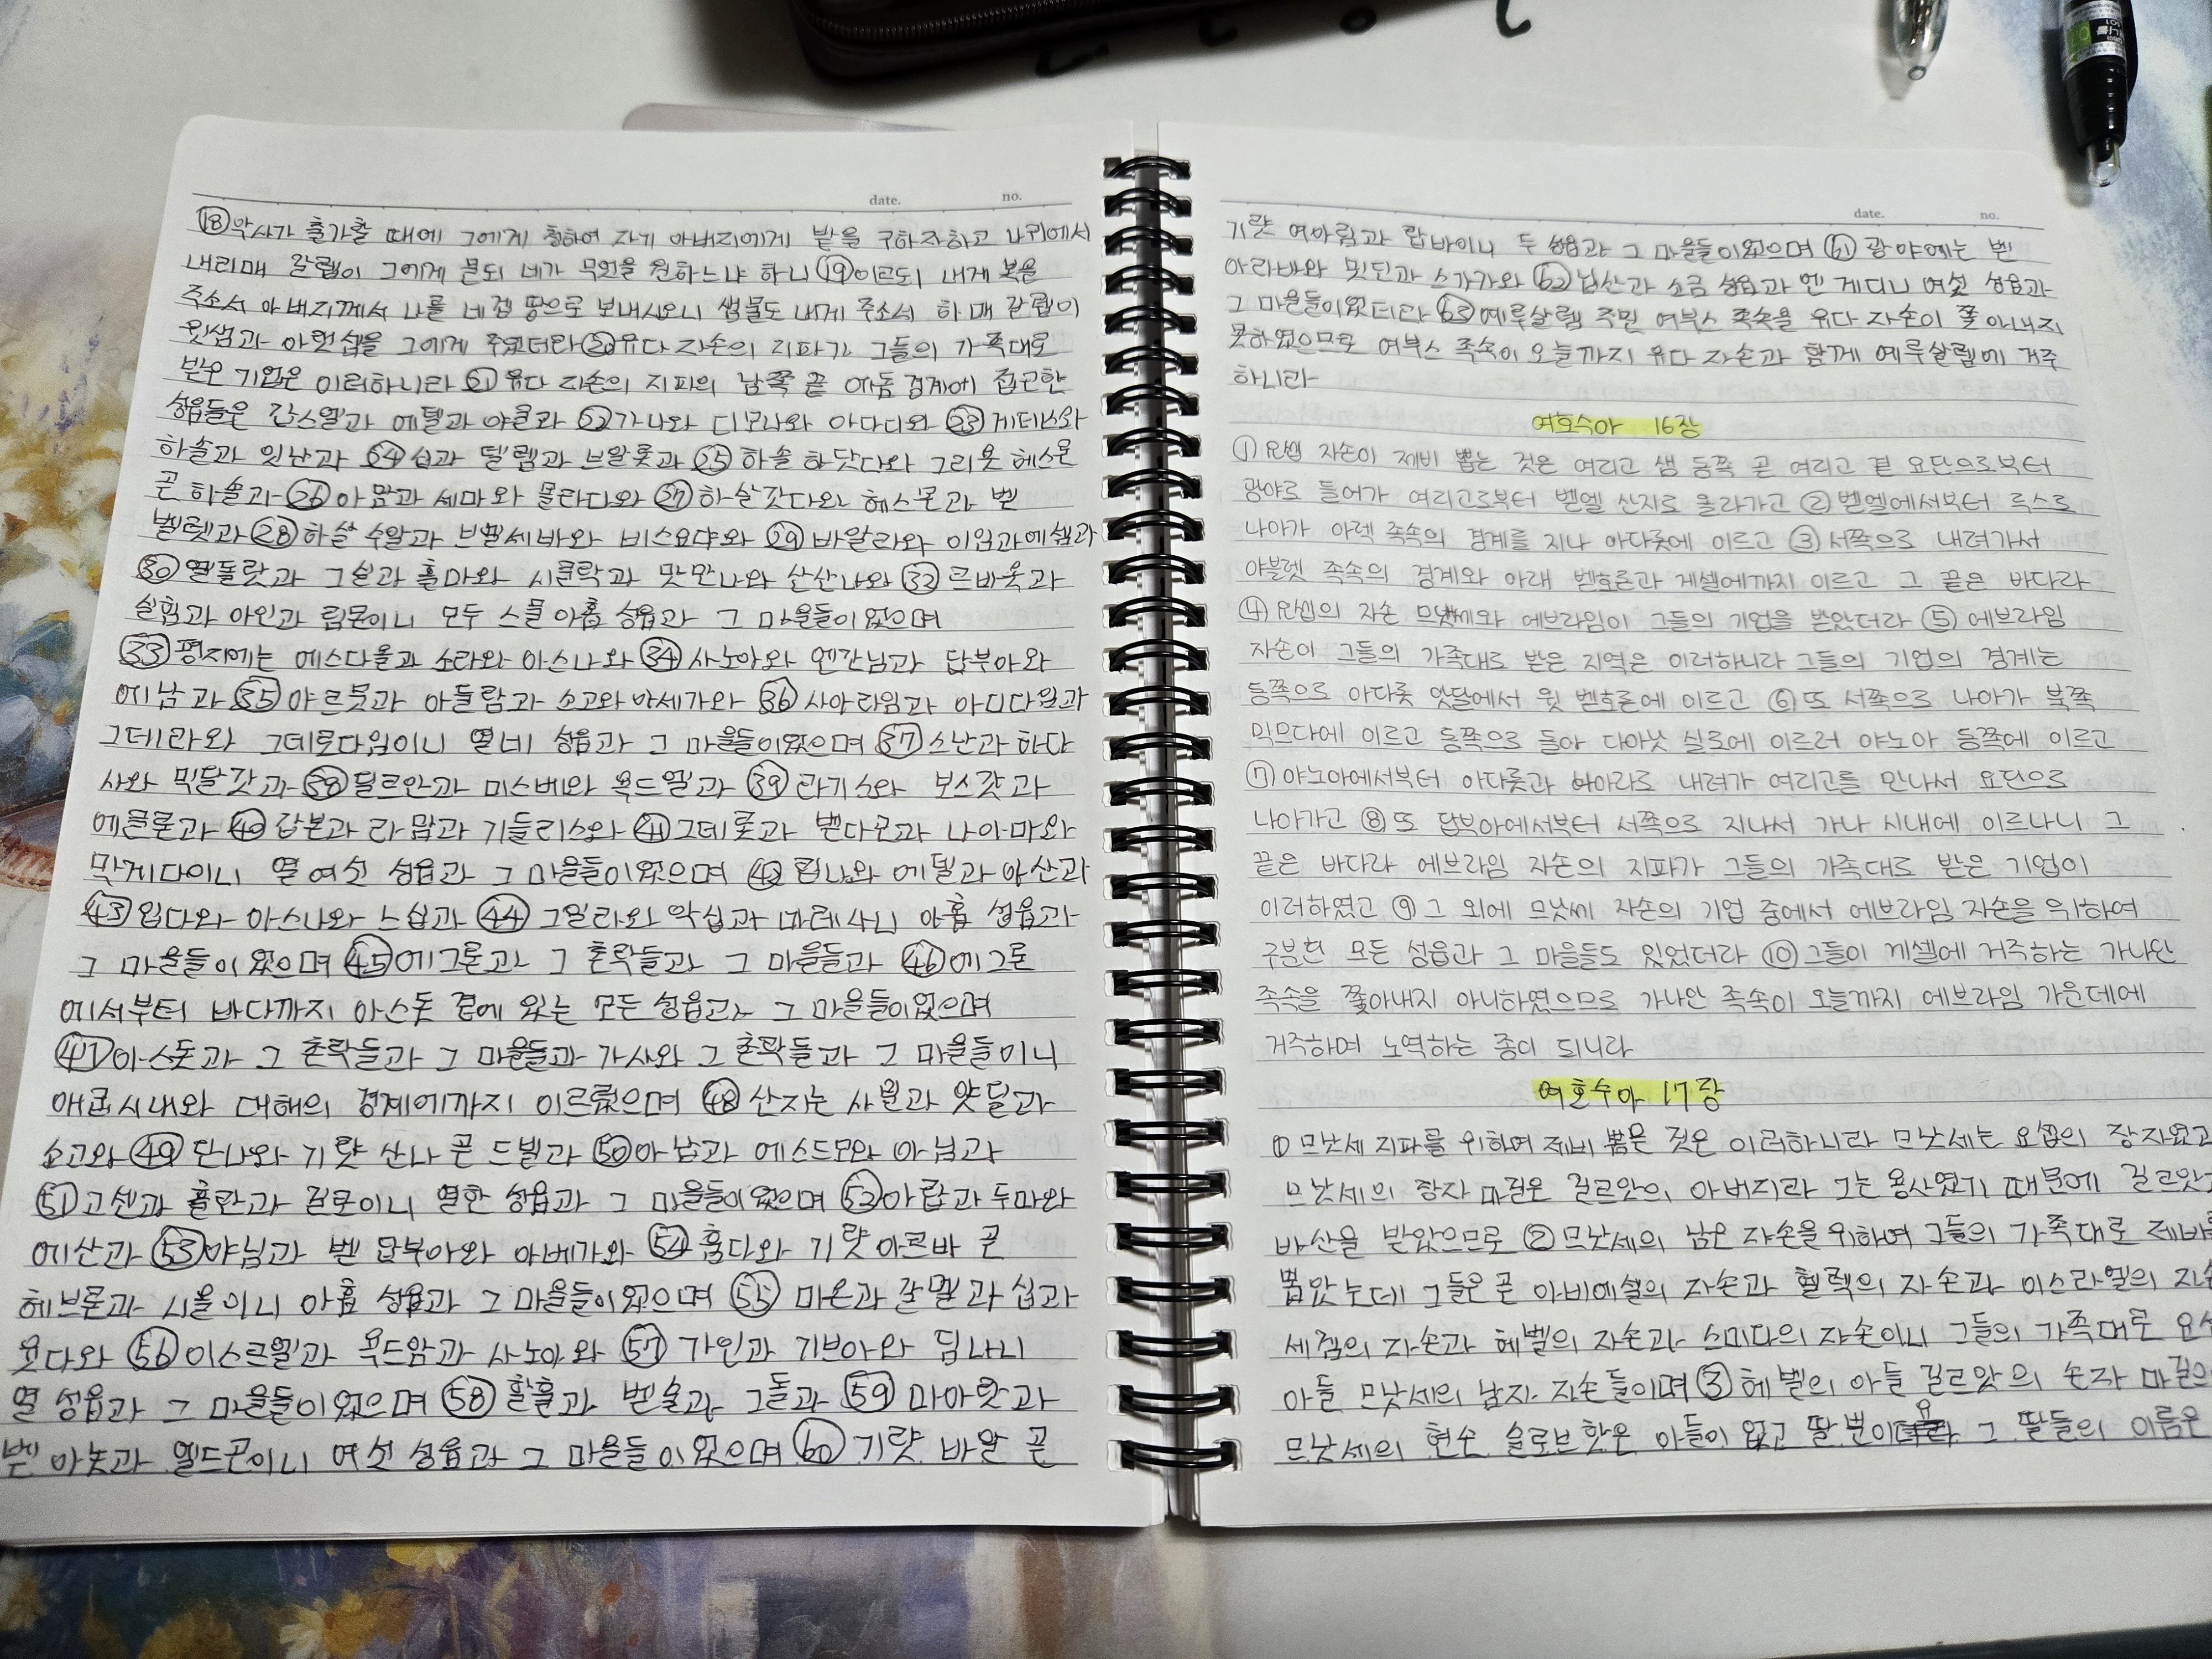 date. no.
⑱악사가 출가할 때에 그에게 청하여 자기 아버지에게 밭을 구하자하고 나귀에서
내리매 갈렙이 그에게 묻되 네가 무엇을 원하느냐 하니 ⑲이르되 내게 복을
주소서 아버지께서 나를 네겝 땅으로 보내시오니 샘물도 내게 주소서 하매 갈렙이
윗샘과 아랫샘을 그에게 주었더라 ⑳유다 자손의 지파가 그들의 가족대로
받은 기업은 이러하니라 ㉑ 유다 자손의 지파의 남쪽 끝 에돔 경계에 접근한
성읍들은 갑스엘과 에델과 야굴과 ㉒기나와 디모나와 아다다와 ㉓게데스와
하솔과 잇난과 ㉔십과 델렘과 브알롯과 ㉕하솔 하닷다와 그리욧 헤스론
곧 하솔과 ㉖아맘과 세마와 몰라다와 ㉗하살갓다와 헤스몬과 벧
벨렛과 ㉘하살 수알과 브엘세바와 비스요댜와 ㉙바알라와 이임과에셈과
㉚엘돌랏과 그실과 홀마와 시글락과 맛만나와 산산나와 ㉜르바옷과
실힘과 아인과 림몬이니 모두 스물 아홉 성읍과 그 마을들이었으며
㉝평지에는 에스다올과 소라와 아스나와 ㉞사노아와 엔간님과 답부아와
에남과 ㉟야르뭇과 아둘람과 소고와 아세가와 ㊱사아라임과 아디다임과
그데라와 그데로다임이니 열네 성읍과 그 마을들이었으며 ㊲스난과 하다
사와 믹달갓과 ㊳딜르안과 미스베와 욕드엘과 ㊴라기스와 보스갓과
에글론과 ㊵갑본과 라맘과 기들리스와 ㊶그데롯과 벧다곤과 나아마와
막게다이니 열 여섯 성읍과 그 마을들이었으며 ㊷립나와 에델과 아산과
㊸입다와 아스나와 느십과 ㊹그일라와 악십과 마레사니 아홉 성읍과
그 마을들이었으며 ㊺에그론과 그 촌락들과 그 마을들과 ㊻에그론
에서부터 바다까지 아스돗 곁에 있는 모든 성읍과 그 마을들이었으며
㊼아스돗과 그 촌락들과 그 마을들과 가사와 그 촌락들과 그 마을들이니
애굽시내와 대해의 경계에까지 이르렀으며 ㊽산지는 사밀과 얏딜과
소고와 ㊾단나와 기럇 산나 곧 드빌과 ㊿아납과 에스드모와 아님과
(51)고센과 홀란과 길로이니 열한 성읍과 그 마을들이었으며 (52)아랍과 두마와
에산과 (53)야님과 벧 답부아와 아베가와 (54)훔다와 기럇 아르바 곧
헤브론과 시올이니 아홉 성읍과 그 마을들이었으며 (55)마온과 갈멜과 십과
윳다와 (56)이스르엘과 욕드암과 사노아와 (57)가인과 기브아와 딤나니
열 성읍과 그 마을들이었으며 (58)할훌과 벧술과 그돌과 (59)마아랏과
벧 아놋과 엘드곤이니 여섯 성읍과 그 마을들이었으며 (60)기럇 바알 곧
date. no.
기럇 여아림과 랍바이니 두 성읍과 그 마을들이었으며 (61)광야에는 벧
아라바와 밋딘과 스가가와 (62)닙산과 소금 성읍과 엔 게디니 여섯 성읍과
그 마을들이었더라 (63)예루살렘 주민 여부스 족속을 유다 자손이 쫓아내지
못하였으므로 여부스 족속이 오늘까지 유다 자손과 함께 예루살렘에 거주
하니라
여호수아 16장
①요셉 자손이 제비 뽑은 것은 여리고 샘 동쪽 곧 여리고 곁 요단으로부터
광야로 들어가 여리고로부터 벧엘 산지로 올라가고 ②벧엘에서부터 루스로
나아가 아렉 족속의 경계를 지나 아다롯에 이르고 ③서쪽으로 내려가서
야블렛 족속의 경계와 아래 벧호론과 게셀에까지 이르고 그 끝은 바다라
④요셉의 자손 므낫세와 에브라임이 그들의 기업을 받았더라 ⑤에브라임
자손이 그들의 가족대로 받은 지역은 이러하니라 그들의 기업의 경계는
동쪽으로 아다롯 앗달에서 윗 벧호론에 이르고 ⑥또 서쪽으로 나아가 북쪽
믹므다에 이르고 동쪽으로 돌아 다아낫 실로에 이르러 야노아 동쪽에 이르고
⑦야노아에서부터 아다롯과 나아라로 내려가 여리고를 만나서 요단으로
나아가고 ⑧또 답부아에서부터 서쪽으로 지나서 가나 시내에 이르나니 그
끝은 바다라 에브라임 자손의 지파가 그들의 가족대로 받은 기업이
이러하였고 ⑨그 외에 므낫세 자손의 기업 중에서 에브라임 자손을 위하여
구분한 모든 성읍과 그 마을들도 있었더라 ⑩그들이 게셀에 거주하는 가나안
족속을 쫓아내지 아니하였으므로 가나안 족속이 오늘까지 에브라임 가운데에
거주하며 노역하는 종이 되니라
여호수아 17장
①므낫세 지파를 위하여 제비 뽑은 것은 이러하니라 므낫세는 요셉의 장자였고
므낫세의 장자 마길은 길르앗의 아버지라 그는 용사였기 때문에 길르앗과
바산을 받았으므로 ②므낫세의 남은 자손을 위하여 그들의 가족대로 제비를
뽑았는데 그들은 곧 아비에셀의 자손과 헬렉의 자손과 아스리엘의 자손
세겜의 자손과 헤벨의 자손과 스미다의 자손이니 그들의 가족대로 요셉
아들 므낫세의 남자 자손들이며 ③헤벨의 아들 길르앗의 손자 마길의
므낫세의 현손 슬로브핫은 아들이 없고 딸 뿐이요 그 딸들의 이름은